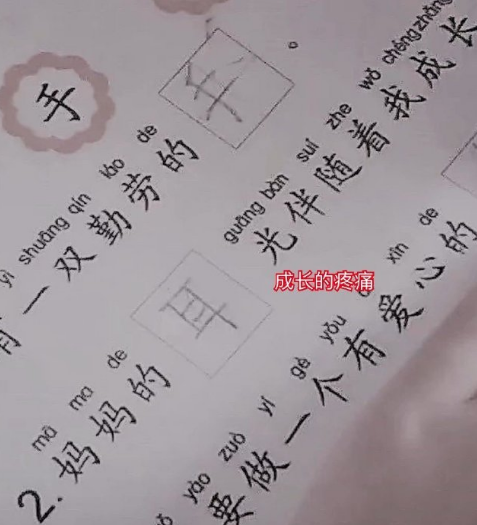 手
yì shuāng qín láo de
有一双勤劳的手。
mā ma de guāng bàn suí zhe wǒ chéngzhǎng
2. 妈妈的耳光伴随着我成长
成长的疼痛
yào zuò yí gè yǒu xīn de
要做一个有爱心的